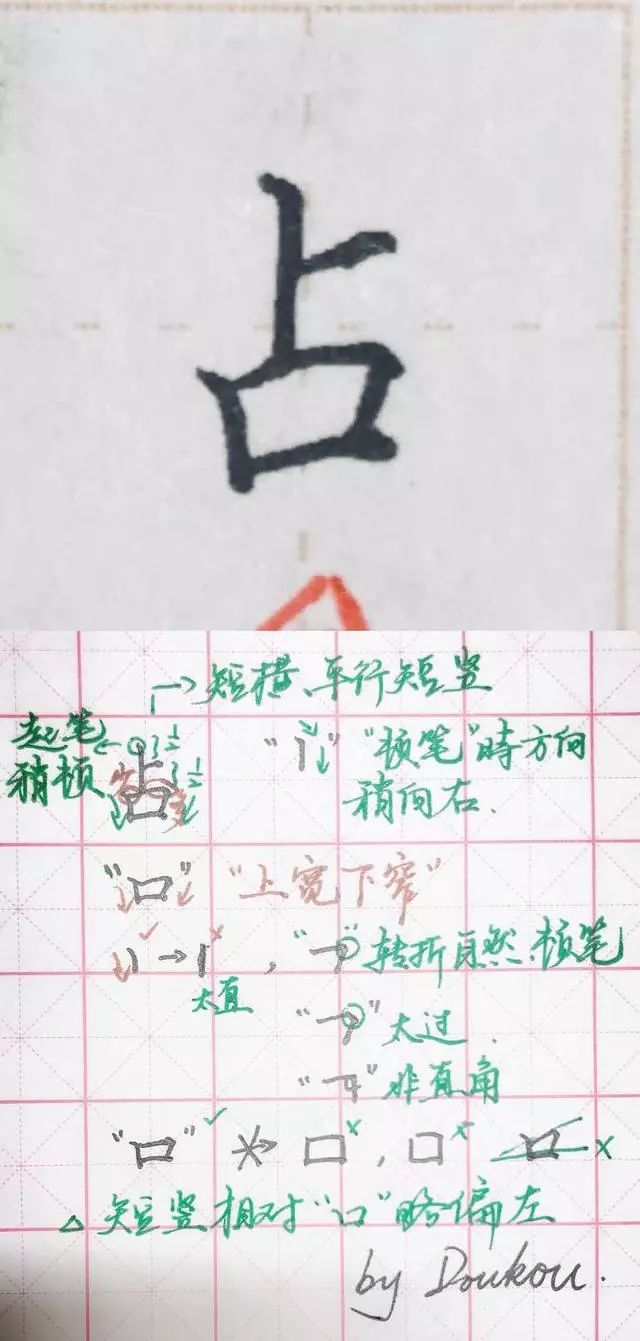 占
短横、平行短竖
起笔
稍顿
"丨" "顿笔"时方向
稍向右.
"口" "上宽下窄"
太直
, "㇕"转折自然、顿笔
"㇕"太过.
"㇕"非直角
"口"
△ 短竖相对"口"略偏左
by Doukou.